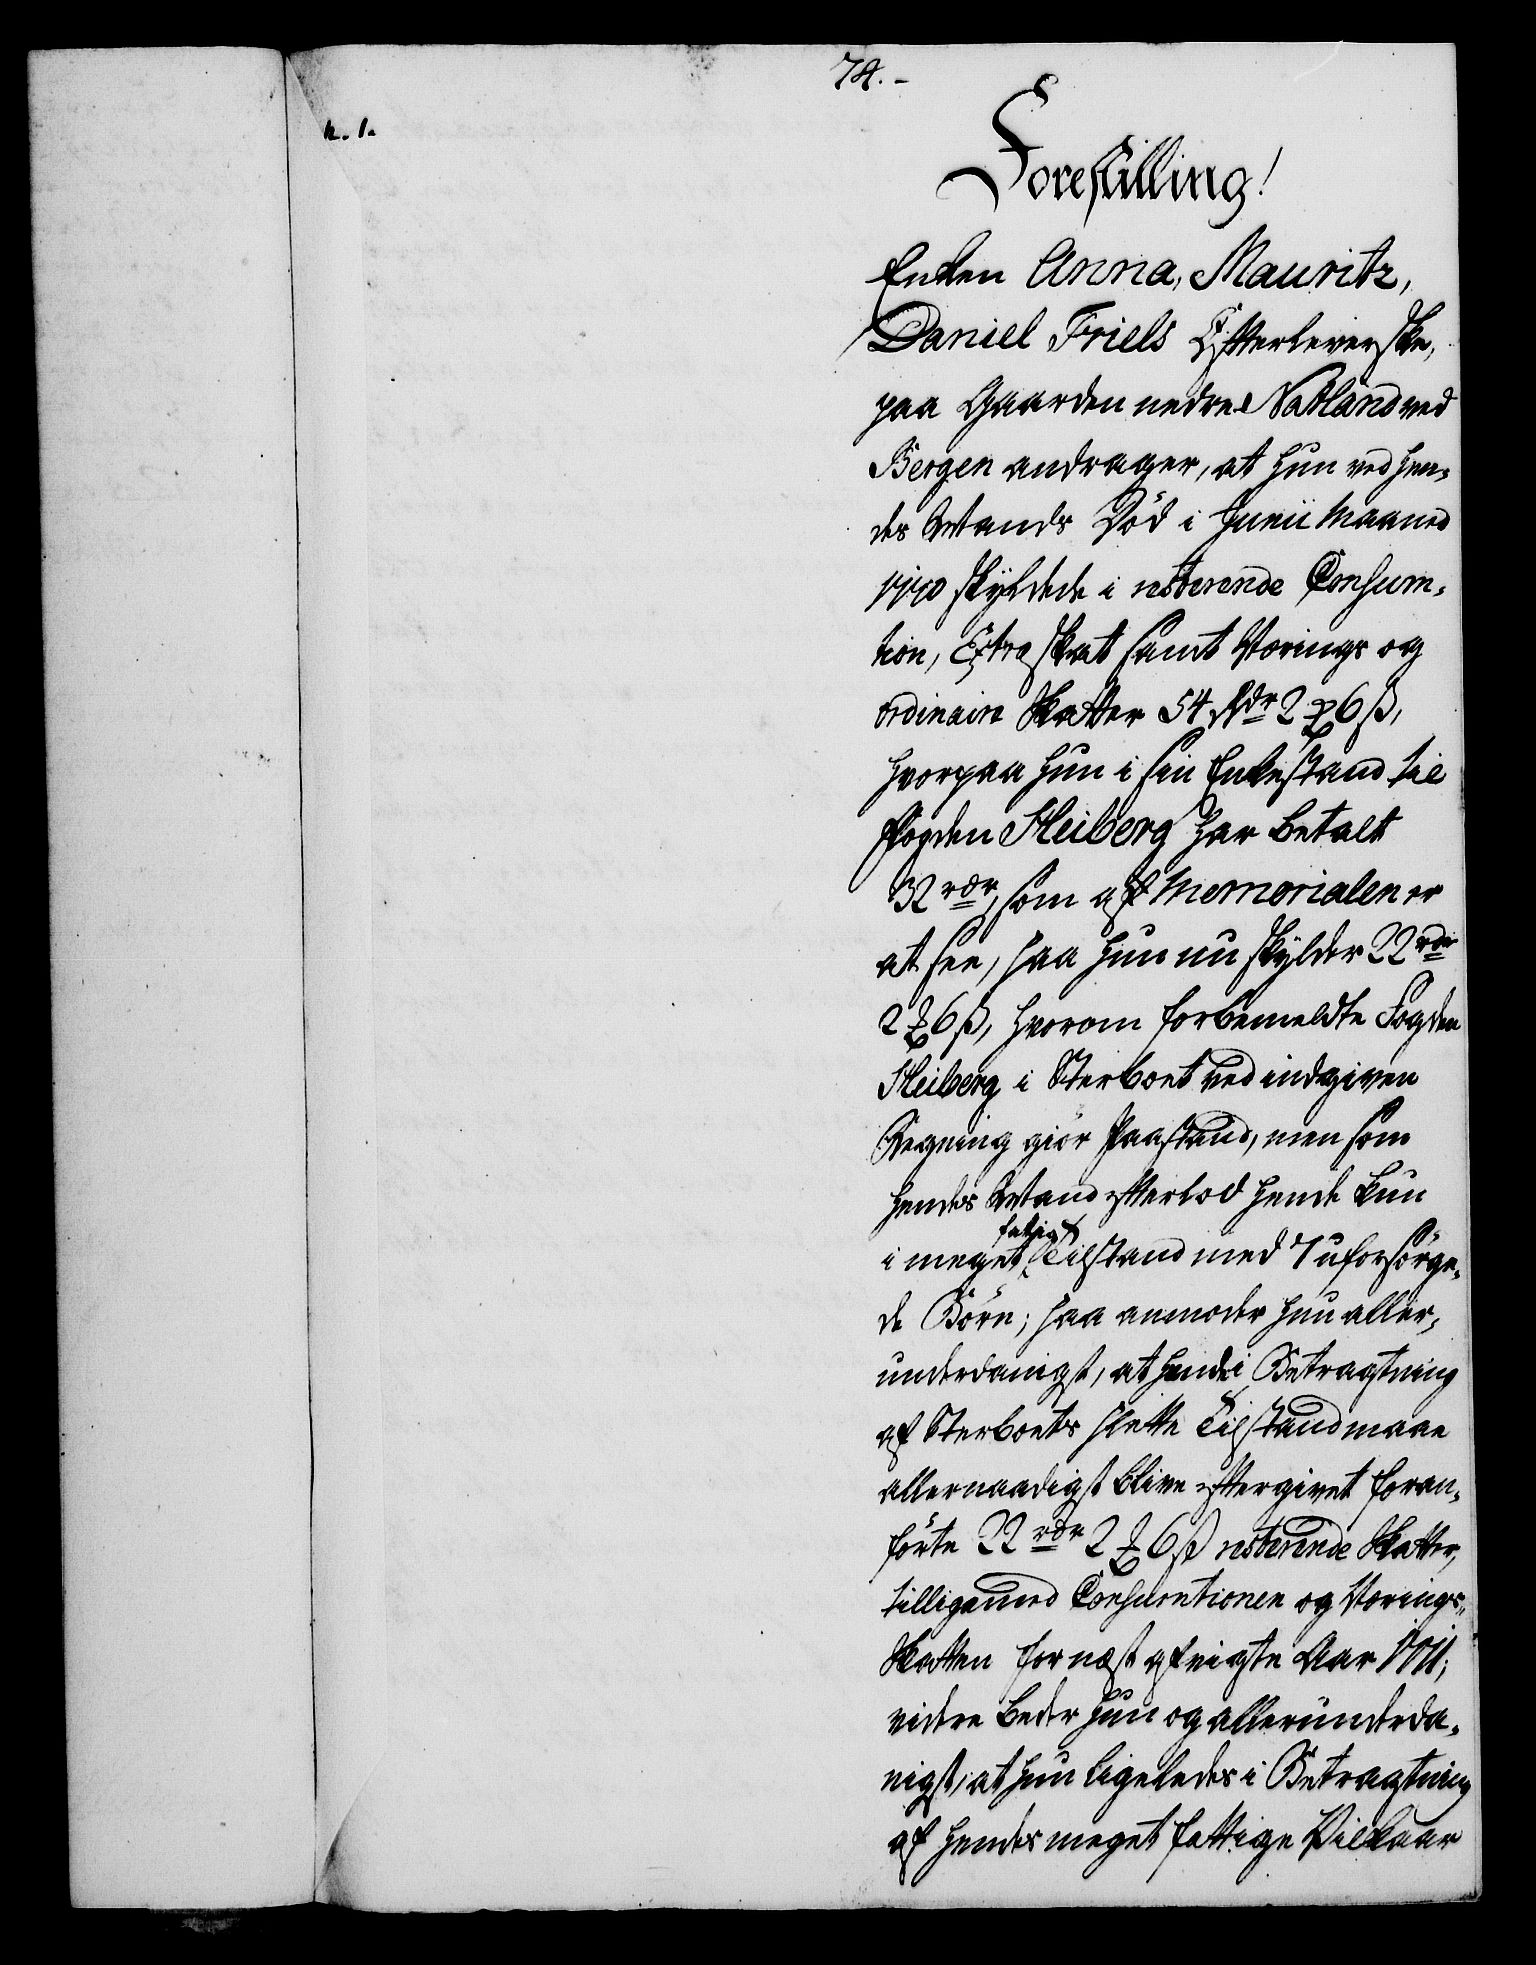 74.-
n. 1.
Forestilling!
Enken Anna, Mauritz,
Daniel Friels Efterleverske,
paa Gaarden nedre Natland ved
Bergen andrager, at hun ved hen-
des Mands Död i Junii Maaned
1770 skyldede i resterende Consum-
tion, Extraskat samt Vorings og
ordinaire Skatter 54 Rdr 2 ℔ 6 ß,
hvorpaa hun i sin Enkestand til
Fogden Heiberg har betalt
32 rdr, som af Memorialen er
at see, saa hun nu skylder 22 rdr
2 ℔ 6 ß, hvorom forbemeldte Fogden
Heiberg i Sterboet ved indgiven
Regning giör Paastand, men som
hendes Mand efterlod hende kun
i meget fatig Tilstand med 7 uforsörge-
de Börn; saa anmoder hun aller-
underdanigst, at hende i Betragtning
af Sterboets slette Tilstand maae
allernaadigst blive eftergivet foran-
förte 22 rdr 2 ℔ 6 ß resterende Skatter,
tilligemed Consumtionen og Vorings-
Skatten for næst afvigte Aar 1771;
videre beder hun og allerunderda-
nigst, at hun ligeledes i Betragtning
af hendes meget fattige Vilkaar